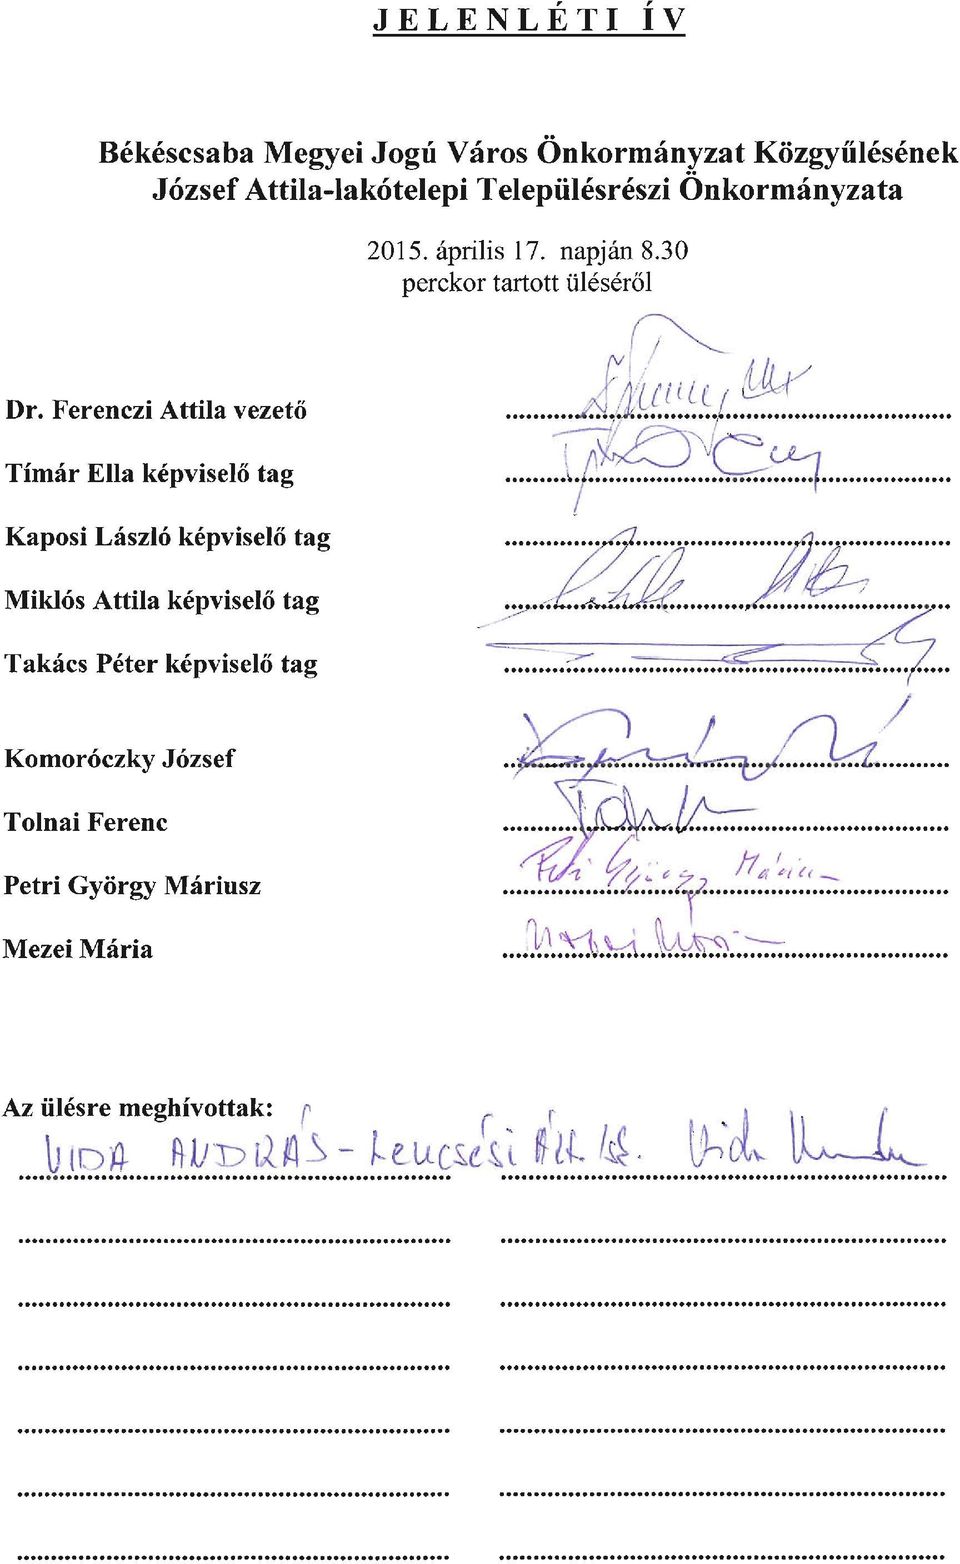 JELENLÉTI ÍV
Békéscsaba Megyei Jogú Város Önkormányzat Közgyűlésének
József Attila-lakótelepi Településrészi Önkormányzata
2015. április 17. napján 8.30
perckor tartott üléséről
Dr. Ferenczi Attila vezető
Tímár Ella képviselő tag
Kaposi László képviselő tag
Miklós Attila képviselő tag
Takács Péter képviselő tag
Komoróczky József
Tolnai Ferenc
Petri György Máriusz Petri György Máriusz
Mezei Mária Mezei Mária
Az ülésre meghívottak:
VIDA ANDRÁS - Lencsési Ált. Isk. Vida András